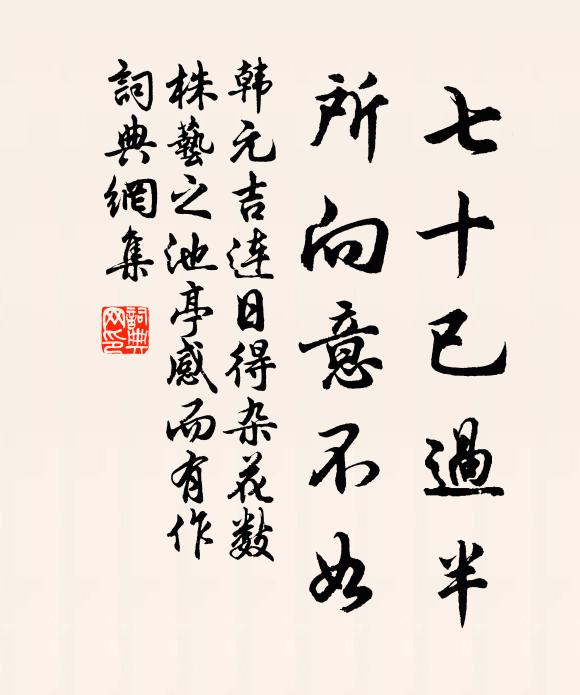 七十已過半
所向意不如
韩元吉連日得杂花数
株藝之池亭感而有作
詞典網集
詞典网印